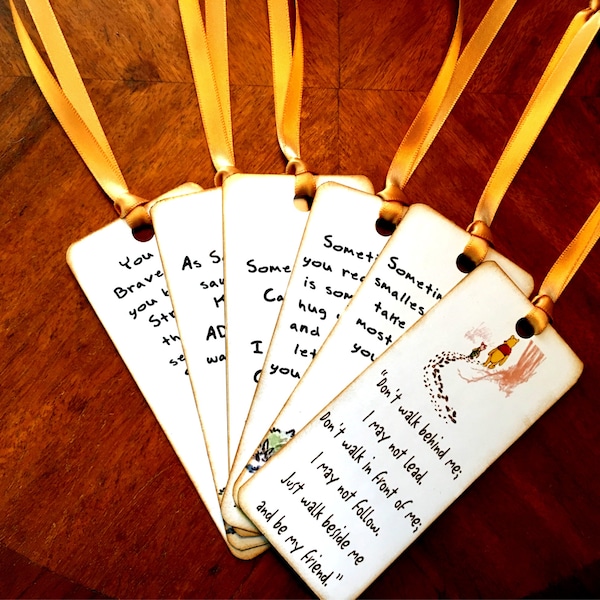 You
Brave
you b
Str
th
se
As S
say
K
AD
wa
Some
Ca
I
Sometim
you ne
is som
hug
and
let
you
Sometim
smalles
take
most
you
"Don't walk behind me;
I may not lead.
Don't walk in front of me;
I may not follow.
Just walk beside me
and be my friend."